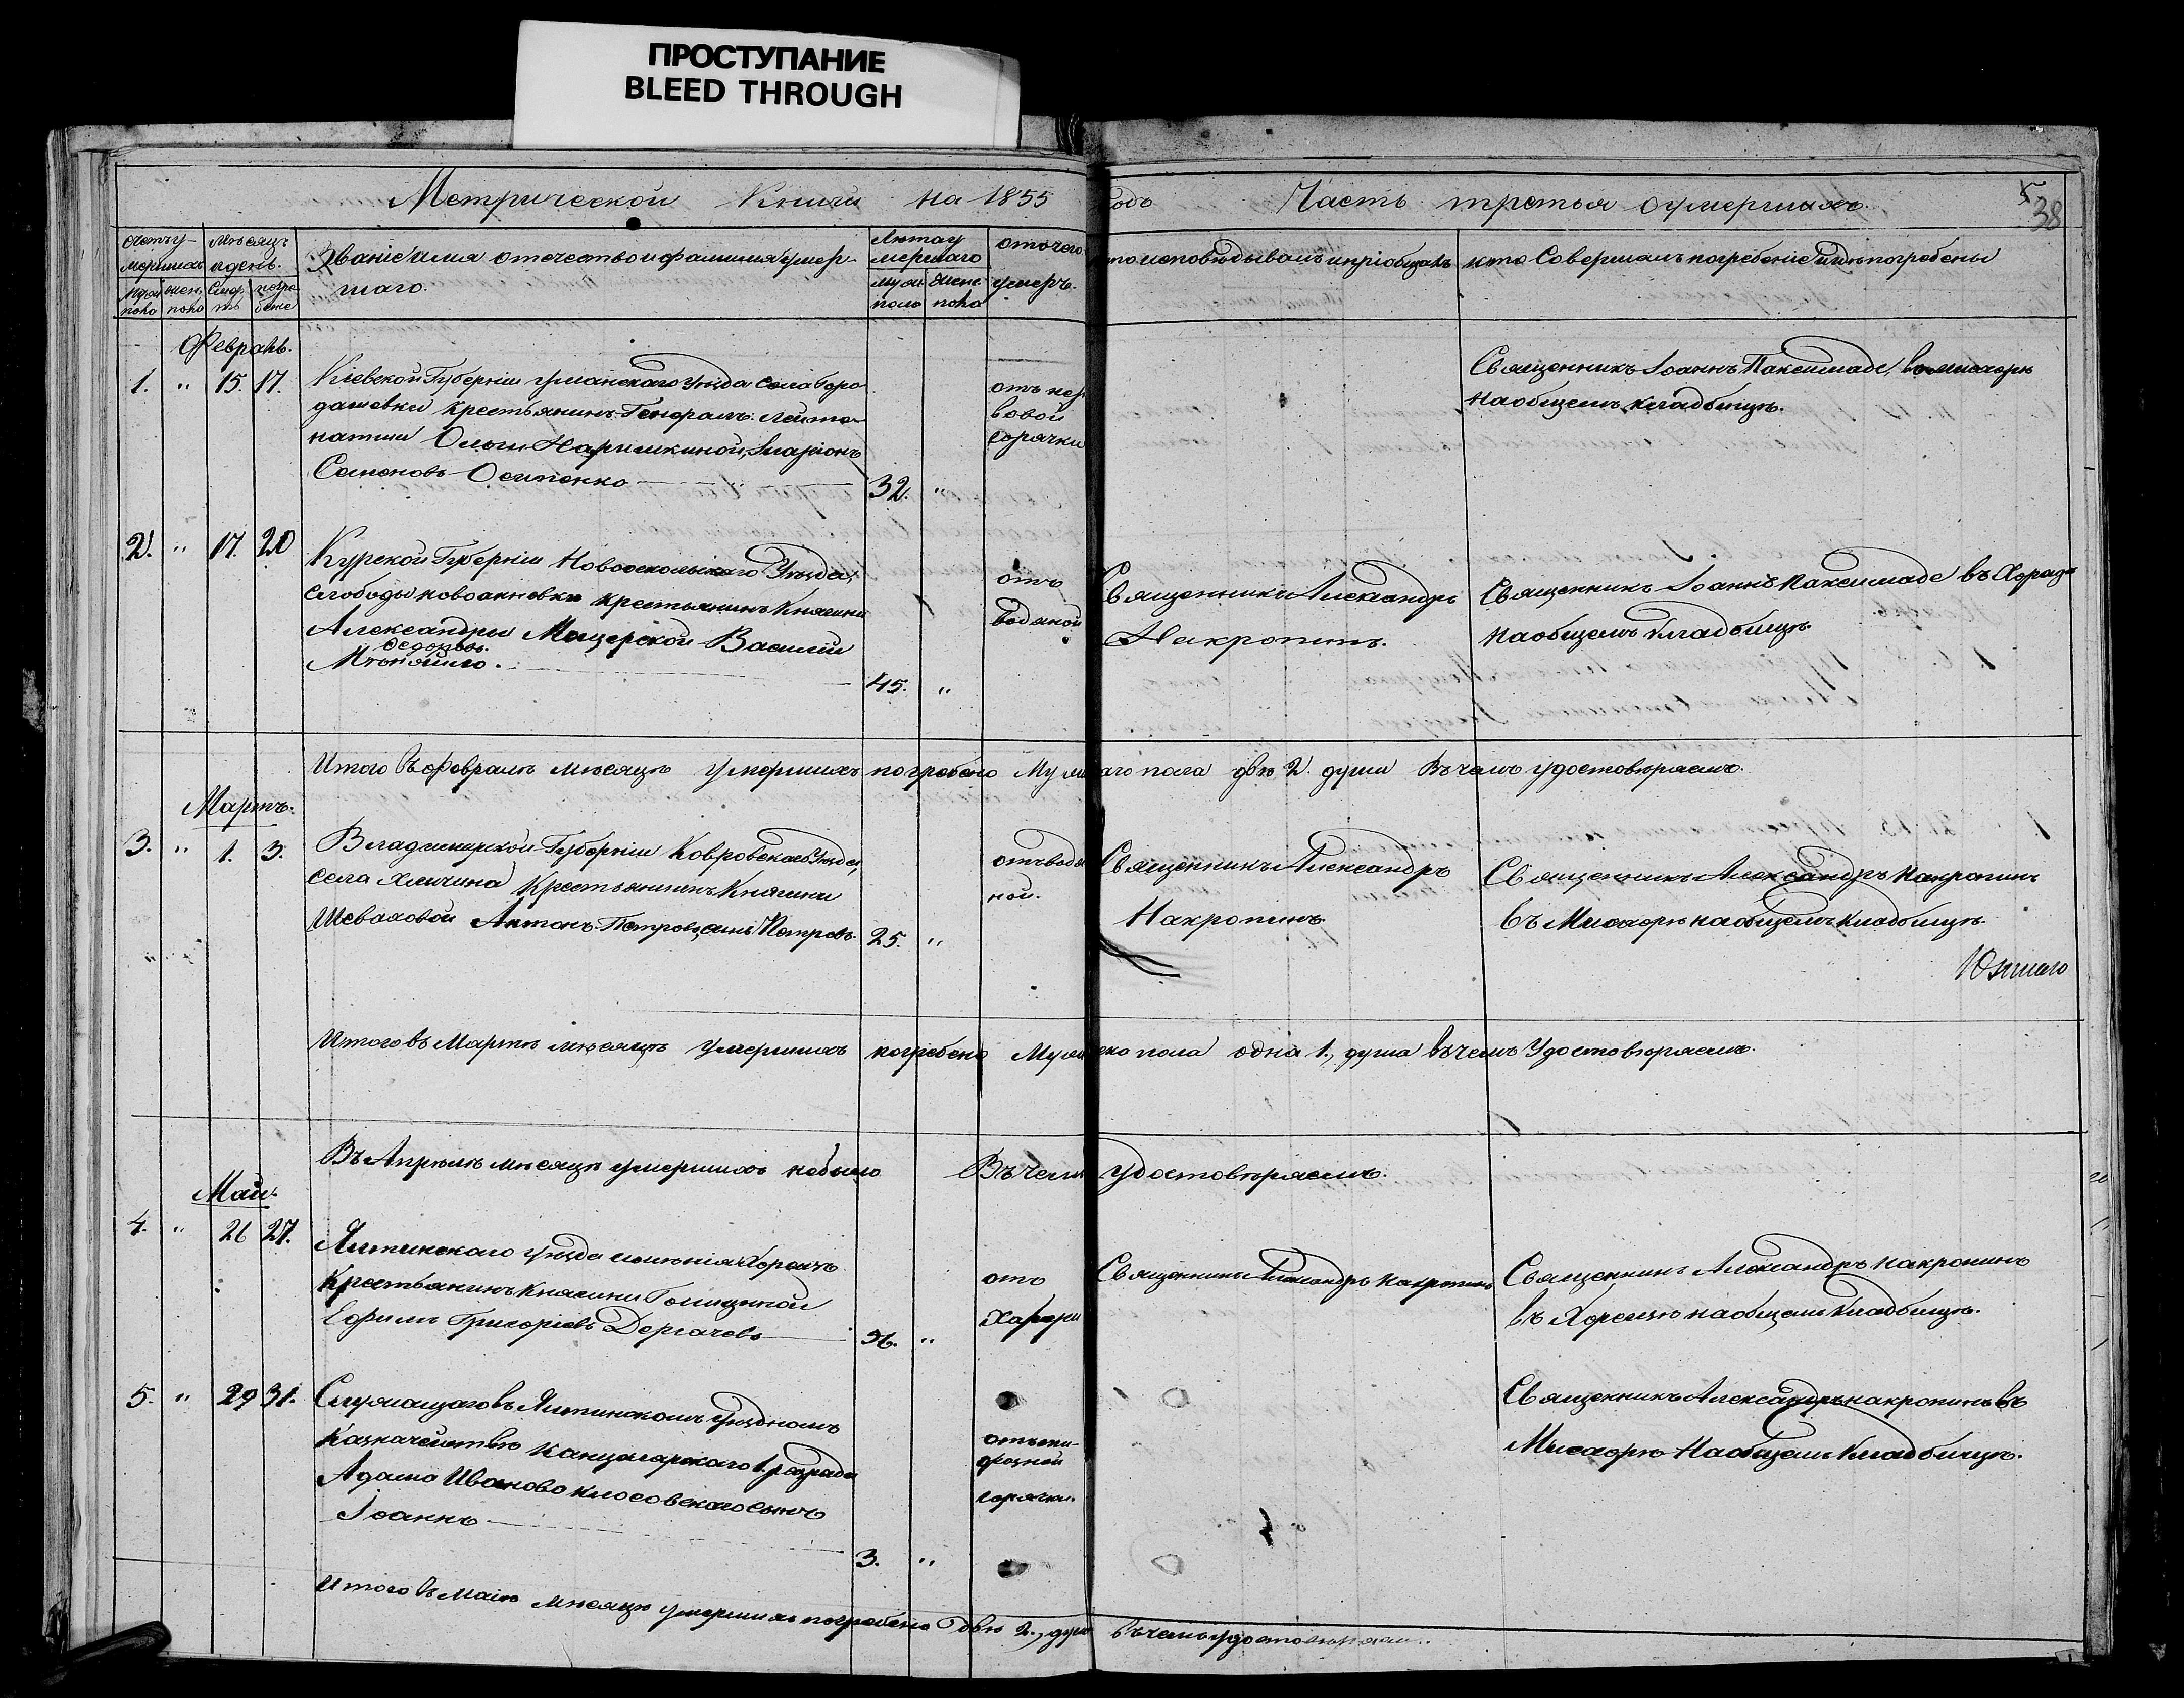 ПРОСТУПАНИЕ
BLEED THROUGH
Метрической Книги на 1855 годъ Часть третья о умершихъ.
5
38
Счетъ умершихъ
Мѣсяцъ и день.
Званіе имя отечество и фамилія умершаго.
Лѣта умершаго
отъ чего умеръ.
кто исповѣдывалъ и пріобщалъ
кто Совершалъ погребеніе и гдѣ погребены
Муж. пола
жен. пола
Смерть
погребеніе
Муж. пола
Женс. пола
Февраль.
1. " 15. 17.
Кіевской Губерніи Уманскаго Уѣзда села Горо-
дашовки крестьянинъ Генералъ-Лейте-
нантши Ольги Наришкиной, Иларіонъ
Семеновъ Осипенко
32. "
отъ нер
вовой
горячки
Священникъ Іоаннъ Паксимаде, въ Мисхорѣ
на общемъ кладбищѣ.
2. " 17. 20
Курской Губерніи Новооскольскаго Уѣзда,
слободы крестьянинъ Княгини
Александры Мещерской Василій
Федоровъ.
45. "
отъ
водяной
Священникъ Александръ
Накропинъ.
Священникъ Іоаннъ Паксимаде въ
на общемъ кладбищѣ.
Итого въ февралѣ мѣсяцѣ умершихъ погребено Мужскаго пола двѣ 2. души Въ чемъ удостовѣряемъ.
Мартъ.
3. " 1. 3.
Владимирской Губерніи Ковровскаго Уѣзда,
села Крестьянинъ Княгини
Антонъ Петровъ, сынъ Петровъ.
25. "
отъ водя
ной.
Священникъ Александръ
Накропинъ.
Священникъ Александръ Накропинъ
въ Мисхорѣ на общемъ кладбищѣ.
Итого въ Мартѣ мѣсяцѣ умершихъ погребено Мужеско пола одна 1., душа въ чемъ Удостовѣряемъ.
Въ Апрѣлѣ мѣсяцѣ умершихъ небыло Въ чемъ удостовѣряемъ.
Май.
4. " 26 27.
Ялтинскаго уѣзда имѣнія Хореизъ
Крестьянинъ Княгини Голицыной
Ефимъ Григорьевъ Дергачовъ
"
отъ
Священникъ Александръ Накропинъ
Священникъ Александръ Накропинъ
въ Хореизѣ на общемъ кладбищѣ.
5. " 29 31.
Служащаго въ Ялтинскомъ Уѣздномъ
Казначействѣ Канцелярскаго 1. разряда
Адама Иванова Клосовскаго сынъ
Іоаннъ
3. "
горячки.
Священникъ Александръ Накропинъ въ
Мисхорѣ На общемъ кладбищѣ.
Итого въ Маіѣ мѣсяцѣ умершихъ погребено двѣ 2., души въ чемъ удостовѣряемъ.